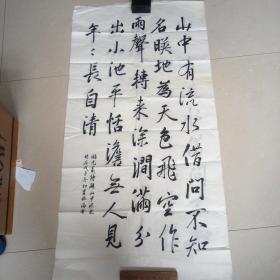 山中有流水借问不知
名映地为天色飞空作
雨聲转来深涧满分
出小池平恬澹無人見
年〻長自清